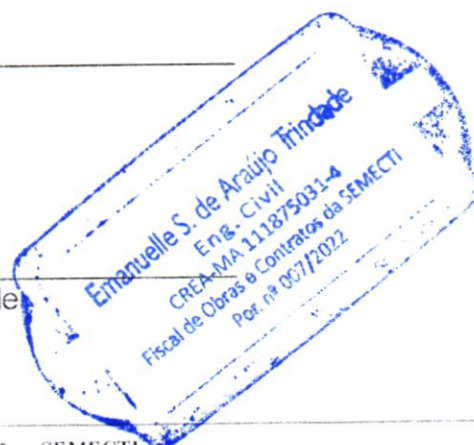 Emanuelle S. de Araújo Trindade
Eng. Civil
CREA-MA 111875031-4
Fiscal de Obras e Contratos da SEMECTI
Por. nº 007/2022
de
SEMECTI